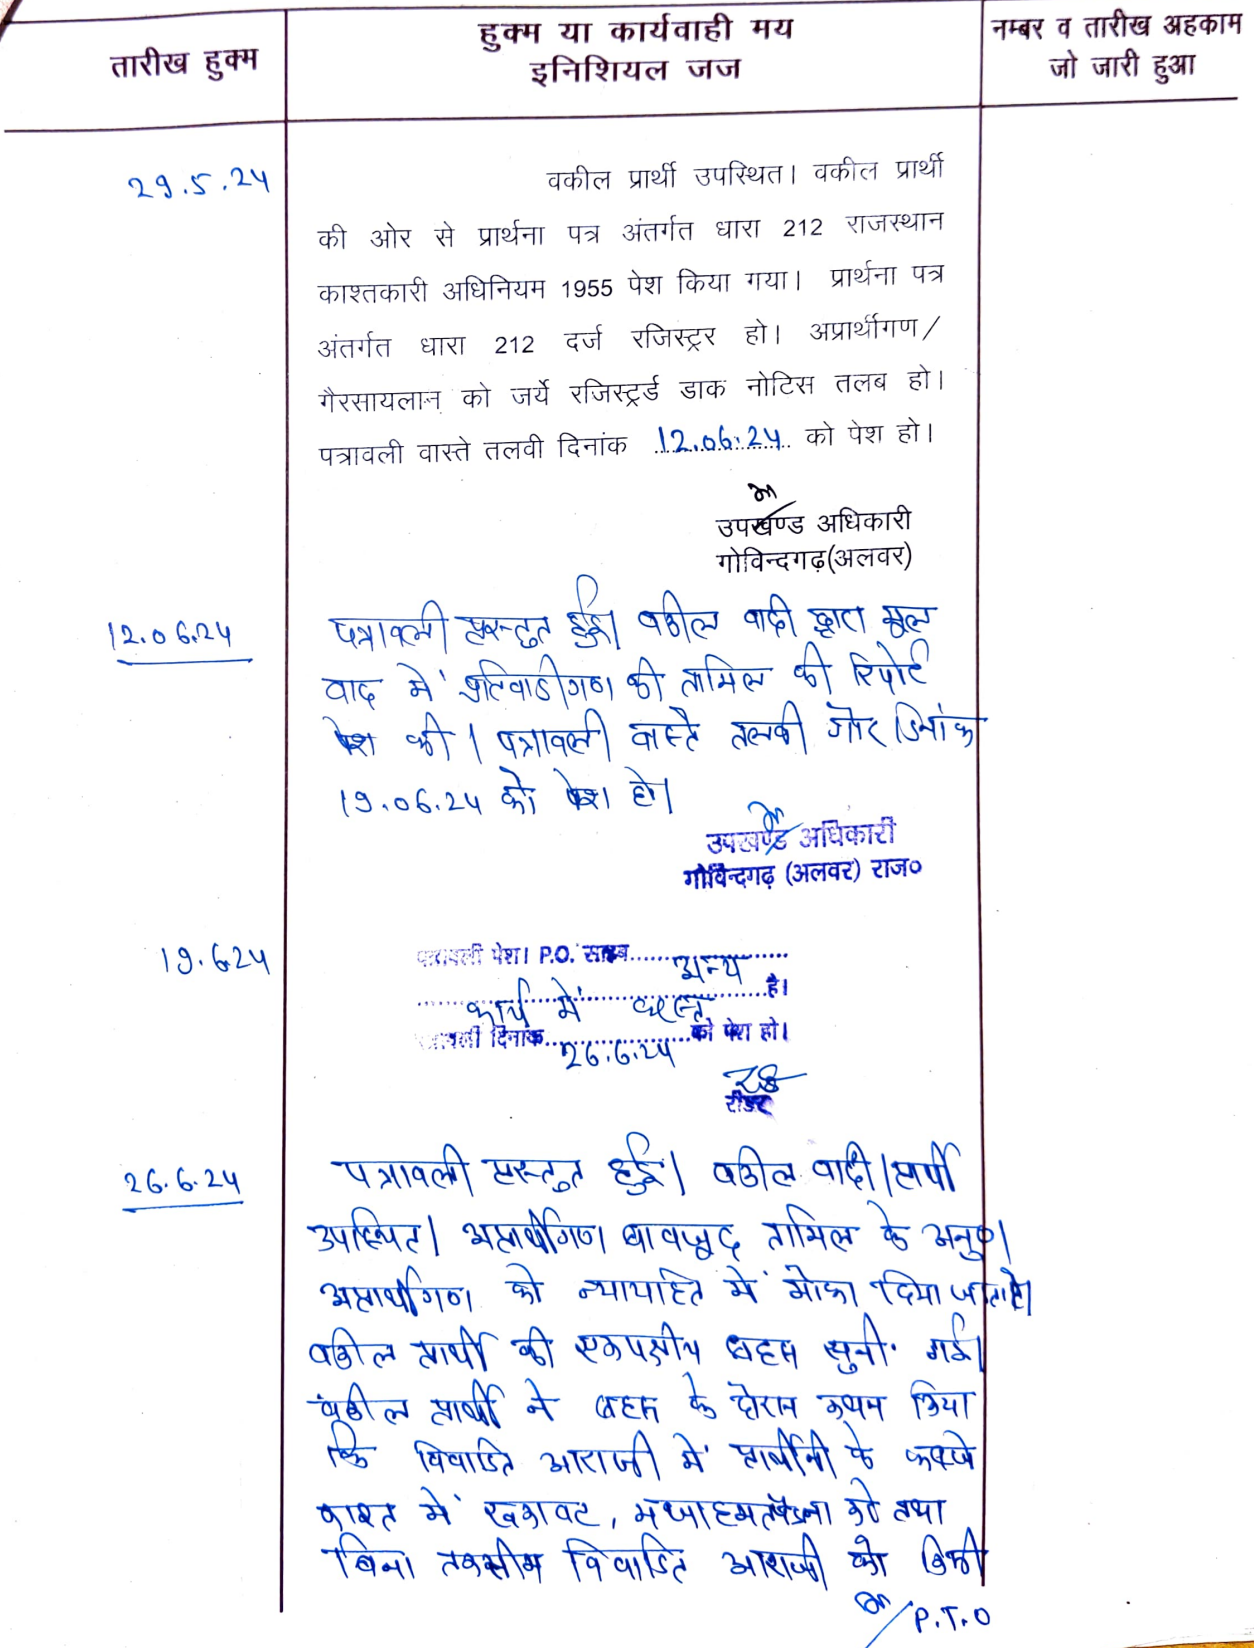 तारीख हुक्म
हुक्म या कार्यवाही मय
इनिशियल जज
नम्बर व तारीख अहकाम
जो जारी हुआ
29.5.24
वकील प्रार्थी उपस्थित। वकील प्रार्थी
की ओर से प्रार्थना पत्र अंतर्गत धारा 212 राजस्थान
काश्तकारी अधिनियम 1955 पेश किया गया। प्रार्थना पत्र
अंतर्गत धारा 212 दर्ज रजिस्ट्रर हो। अप्रार्थीगण/
गैरसायलान् को जर्ये रजिस्ट्रर्ड डाक नोटिस तलब हो।
पत्रावली वास्ते तलवी दिनांक 12.06.24 को पेश हो।
उपखण्ड अधिकारी
गोविन्दगढ़(अलवर)
12.06.24
पत्रावली प्रस्तुत हुई। वकील वादी द्वारा मूल
वाद में प्रतिवादीगण की तामिल की रिपोर्ट
पेश की। पत्रावली वास्ते तलबी गौर दिनांक
19.06.24 को पेश हो।
उपखण्ड अधिकारी
गोविन्दगढ़ (अलवर) राज०
19.6.24
पत्रावली पेश। P.O. साहब......अन्य
कार्य में व्यस्त है।
पत्रावली दिनांक 26.6.24 को पेश हो।
रीडर
26.6.24
पत्रावली प्रस्तुत हुई। वकील वादी/प्रार्थी
उपस्थित। अप्रार्थीगण बावजूद तामिल के अनु०।
अप्रार्थीगण को न्यायहित में मौका दिया जाता है।
वकील प्रार्थी की एकपक्षीय बहस सुनी गई।
वकील प्रार्थी ने बहस के दौरान कथन किया
कि विवादित आराजी में प्रार्थीनी के कब्जे
काश्त में रुकावट, मजाहमत पैदा करे तथा
बिना तकसीम विवादित आराजी को किसी
P.T.O